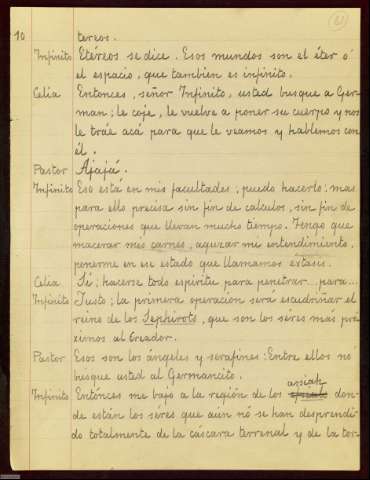 10
tereos.
Infinito Etéreos se dice. Esos mundos son el éter o
el espacio, que tambien es infinito.
Celia Entonces, señor Infinito, usted busque a Ger-
man; le coje, le vuelve a poner su cuerpo y nos
le tráe acá para que le veamos y hablemos con
él.
Pastor Ajajá.
Infinito Eso está en mis facultades, puedo hacerlo; mas
para ello precisa sin fin de calculos, sin fin de
operaciones que llevan mucho tiempo. Tengo que
macerar mis carnes, aguzar mi entendimiento,
ponerme en ese estado que llamamos éxtasis.
Celia Sí; hacerse todo espíritu para penetrar... para...
Infinito Justo; la primera operacion será escudriñar el
reino de los Sephirots, que son los séres más pro-
ximos al Creador.
Pastor Esos son los ángeles y serafines: Entre ellos nó
busque usted al Germancito.
Infinito Entónces me bajo a la región de los asiah don-
de están los séres que aún nó se han desprendi-
do totalmente de la cáscara terrenal y de la tor-